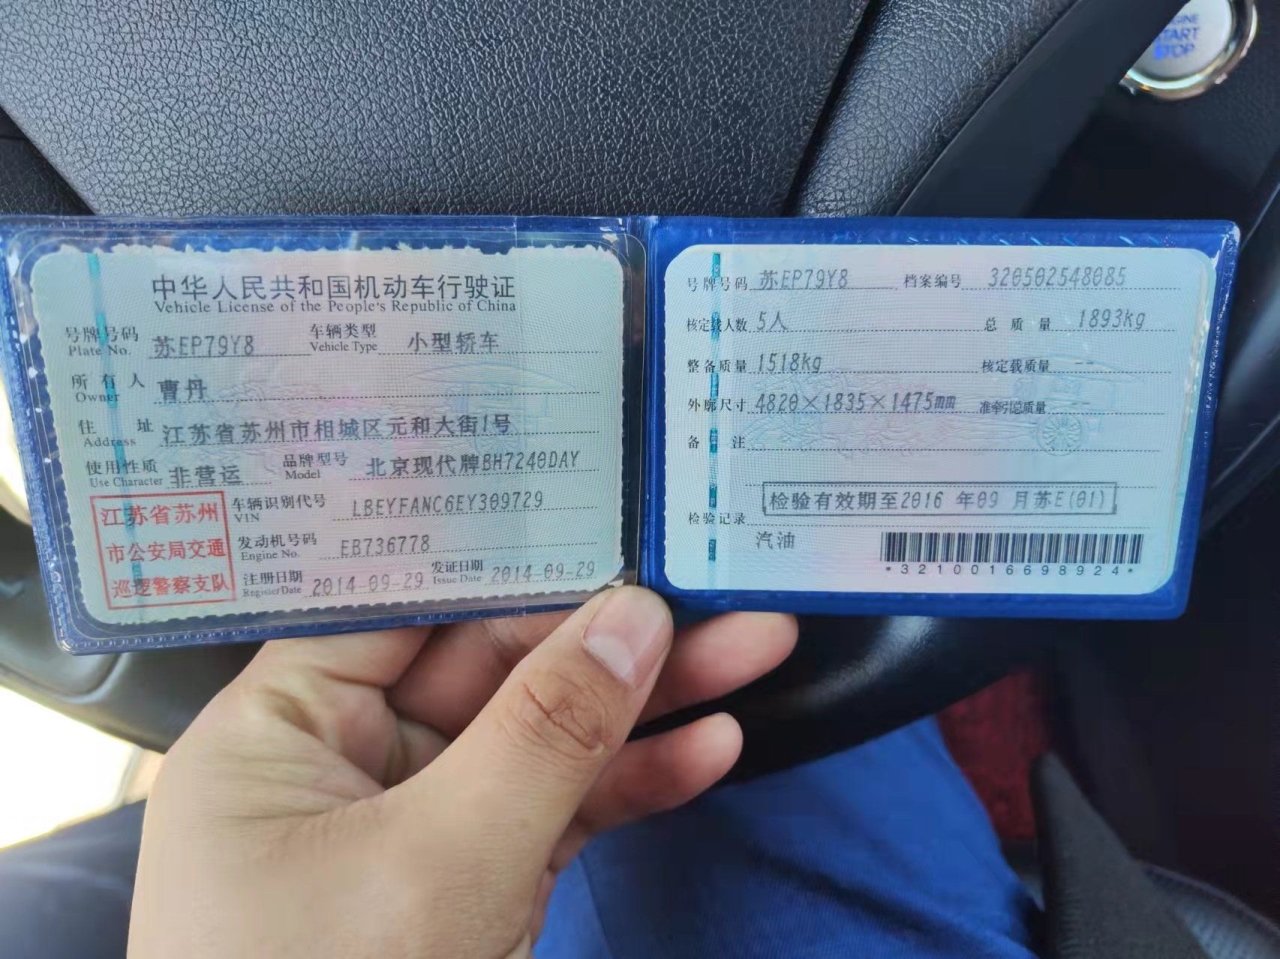 ENGINE
START
STOP
中华人民共和国机动车行驶证
Vehicle License of the People's Republic of China
号牌号码 苏EP79Y8 车辆类型 小型轿车
Plate No. Vehicle Type
所有人 曹丹
Owner
住址 江苏省苏州市相城区元和大街1号
Address
使用性质 非营运 品牌型号 北京现代牌BH7240DAY
Use Character Model
江苏省苏州
市公安局交通
巡逻警察支队
车辆识别代号 LBEYFANC6EY309729
VIN
发动机号码 EB736778
Engine No.
注册日期 2014-09-29 发证日期 2014-09-29
Register Date Issue Date
号牌号码 苏EP79Y8 档案编号 320502548085
核定载人数 5人 总质量 1893kg
整备质量 1518kg 核定载质量 --
外廓尺寸 4820×1835×1475mm 准牵引总质量 --
备注
检验有效期至2016年09月苏E(01)
检验记录
汽油
*3210016698924*